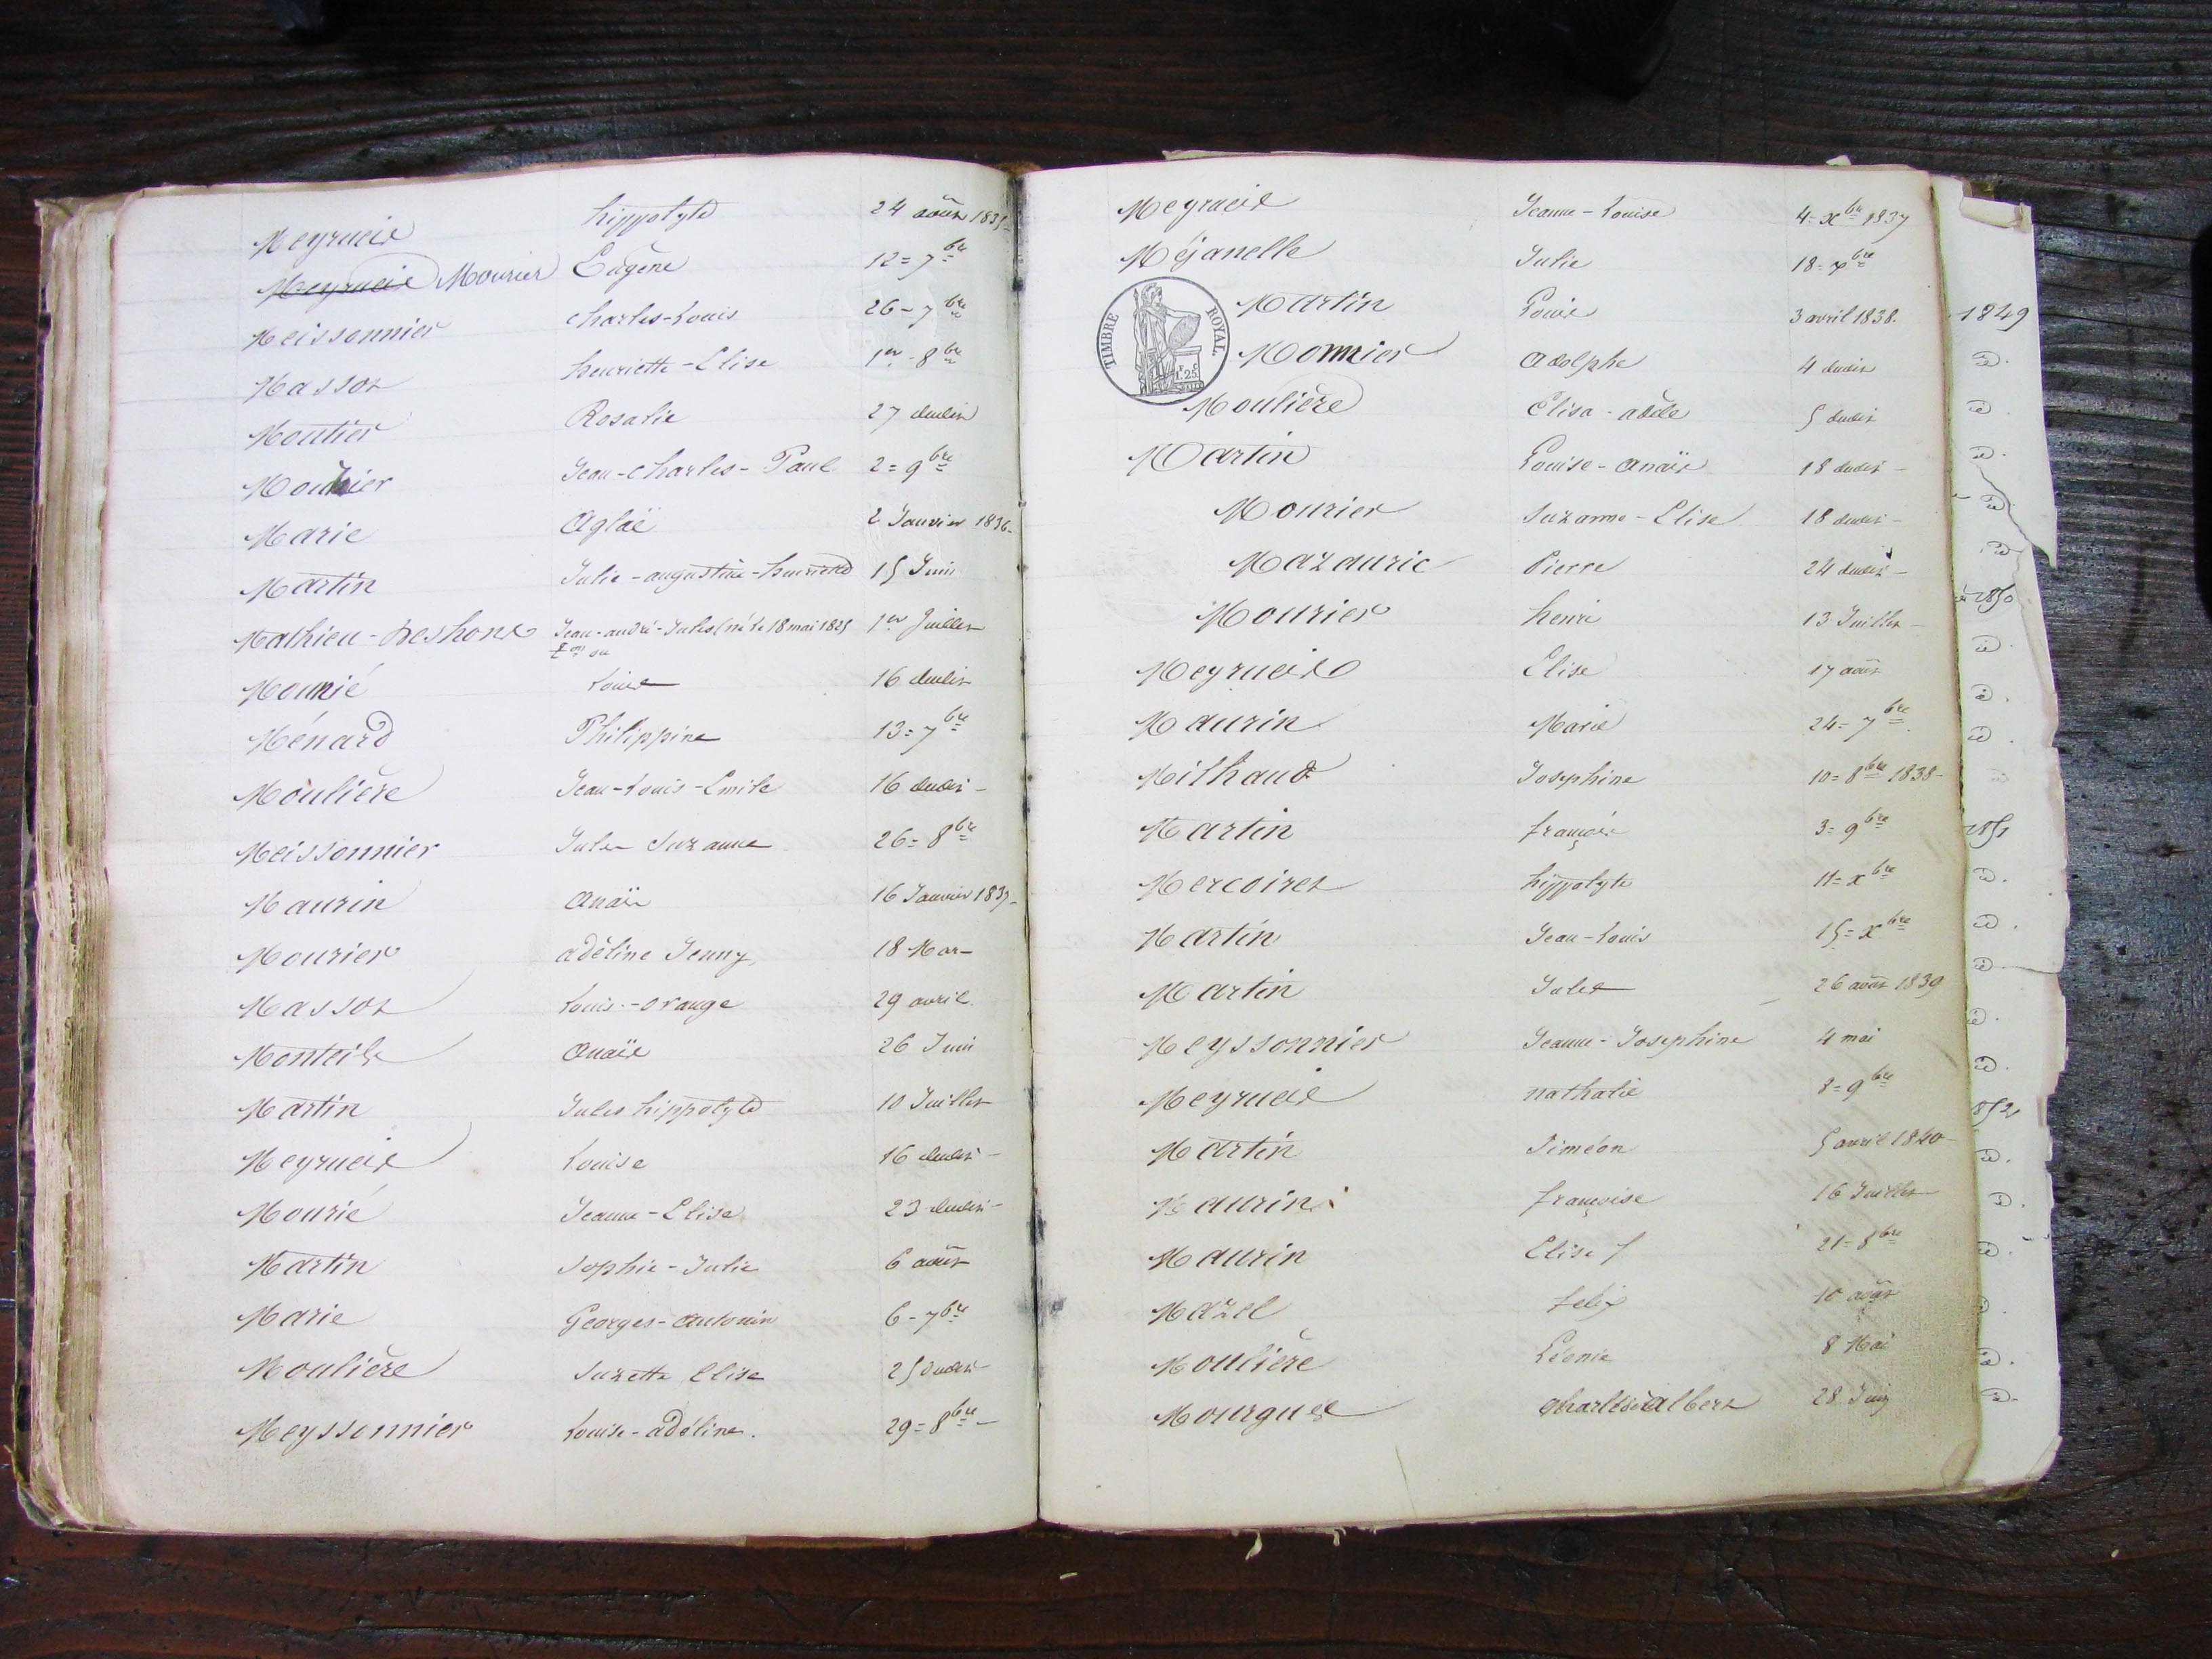 Meyrueis hippolyte 24 août 1835
Meyrueis Mourier Eugène 12 = 7bre
Meissonnier charles-Louis 26 - 7bre
Masson henriette-Elise 1er 8bre
Moutier Rosalie 27 dudit
Mourier Jean-charles-Paul 2 = 9bre
Marie Aglaë 2 Janvier 1836
Martin Julie-augustine-henriette 15 Juin
Mathieu-Deshons Jean-andré-Jules (né le 18 mai 1825 1er Juillet
Mourié Louise 16 dudit
Ménard Philippine 13 = 7bre
Moulière Jean-Louis-Emile 16 dudit
Meissonnier Jules Suzanne 26 = 8bre
Maurin Anaïs 16 Janvier 1837
Mourier adéline Jenny 18 Mars
Masson Louis-orange 29 avril
Monteils Anaïs 26 Juin
Martin Jules hippolyte 10 Juillet
Meyrueis Louise 16 dudit
Mourié Jeanne-Elise 23 dudit
Martin Sophie-Julie 6 août
Marie Georges-antonin 6 - 7bre
Moulière Suzette Elise 25 dudit
Meyssonnier Louise-adéline. 29 = 8bre
Meyrueis Jeanne-Louise 4 = xbre 1837
Méjanelle Julie 18 = xbre
TIMBRE ROYAL
1.25
Martin Louis 3 avril 1838.
Monnier Adolphe 4 dudit
Moulière Elisa-adèle 5 dudit
Martin Louise-anaïs 18 dudit
Mourier Suzanne-Elise 18 dudit
Mazauric Pierre 24 dudit
Mourier henri 13 Juillet
Meyrueis Elise 17 août
Maurin Marie 24 = 7bre
Milhaud Josephine 10 = 8bre 1838
Martin françois 3 = 9bre
Mercoiret hippolyte 11 = xbre
Martin Jean-Louis 15 = xbre
Martin Jules 26 août 1839
Meyssonnier Jeanne-Josephine 4 mai
Meyrueis nathalie 8 = 9bre
Martin Siméon 5 avril 1840
Maurin françoise 16 Juillet
Maurin Elise 21 = 8bre
Mazel felix 10 août
Moulière Léonie 8 Mai
Mourgues Charles albert 28 Juin
1849
1850
1851
1852